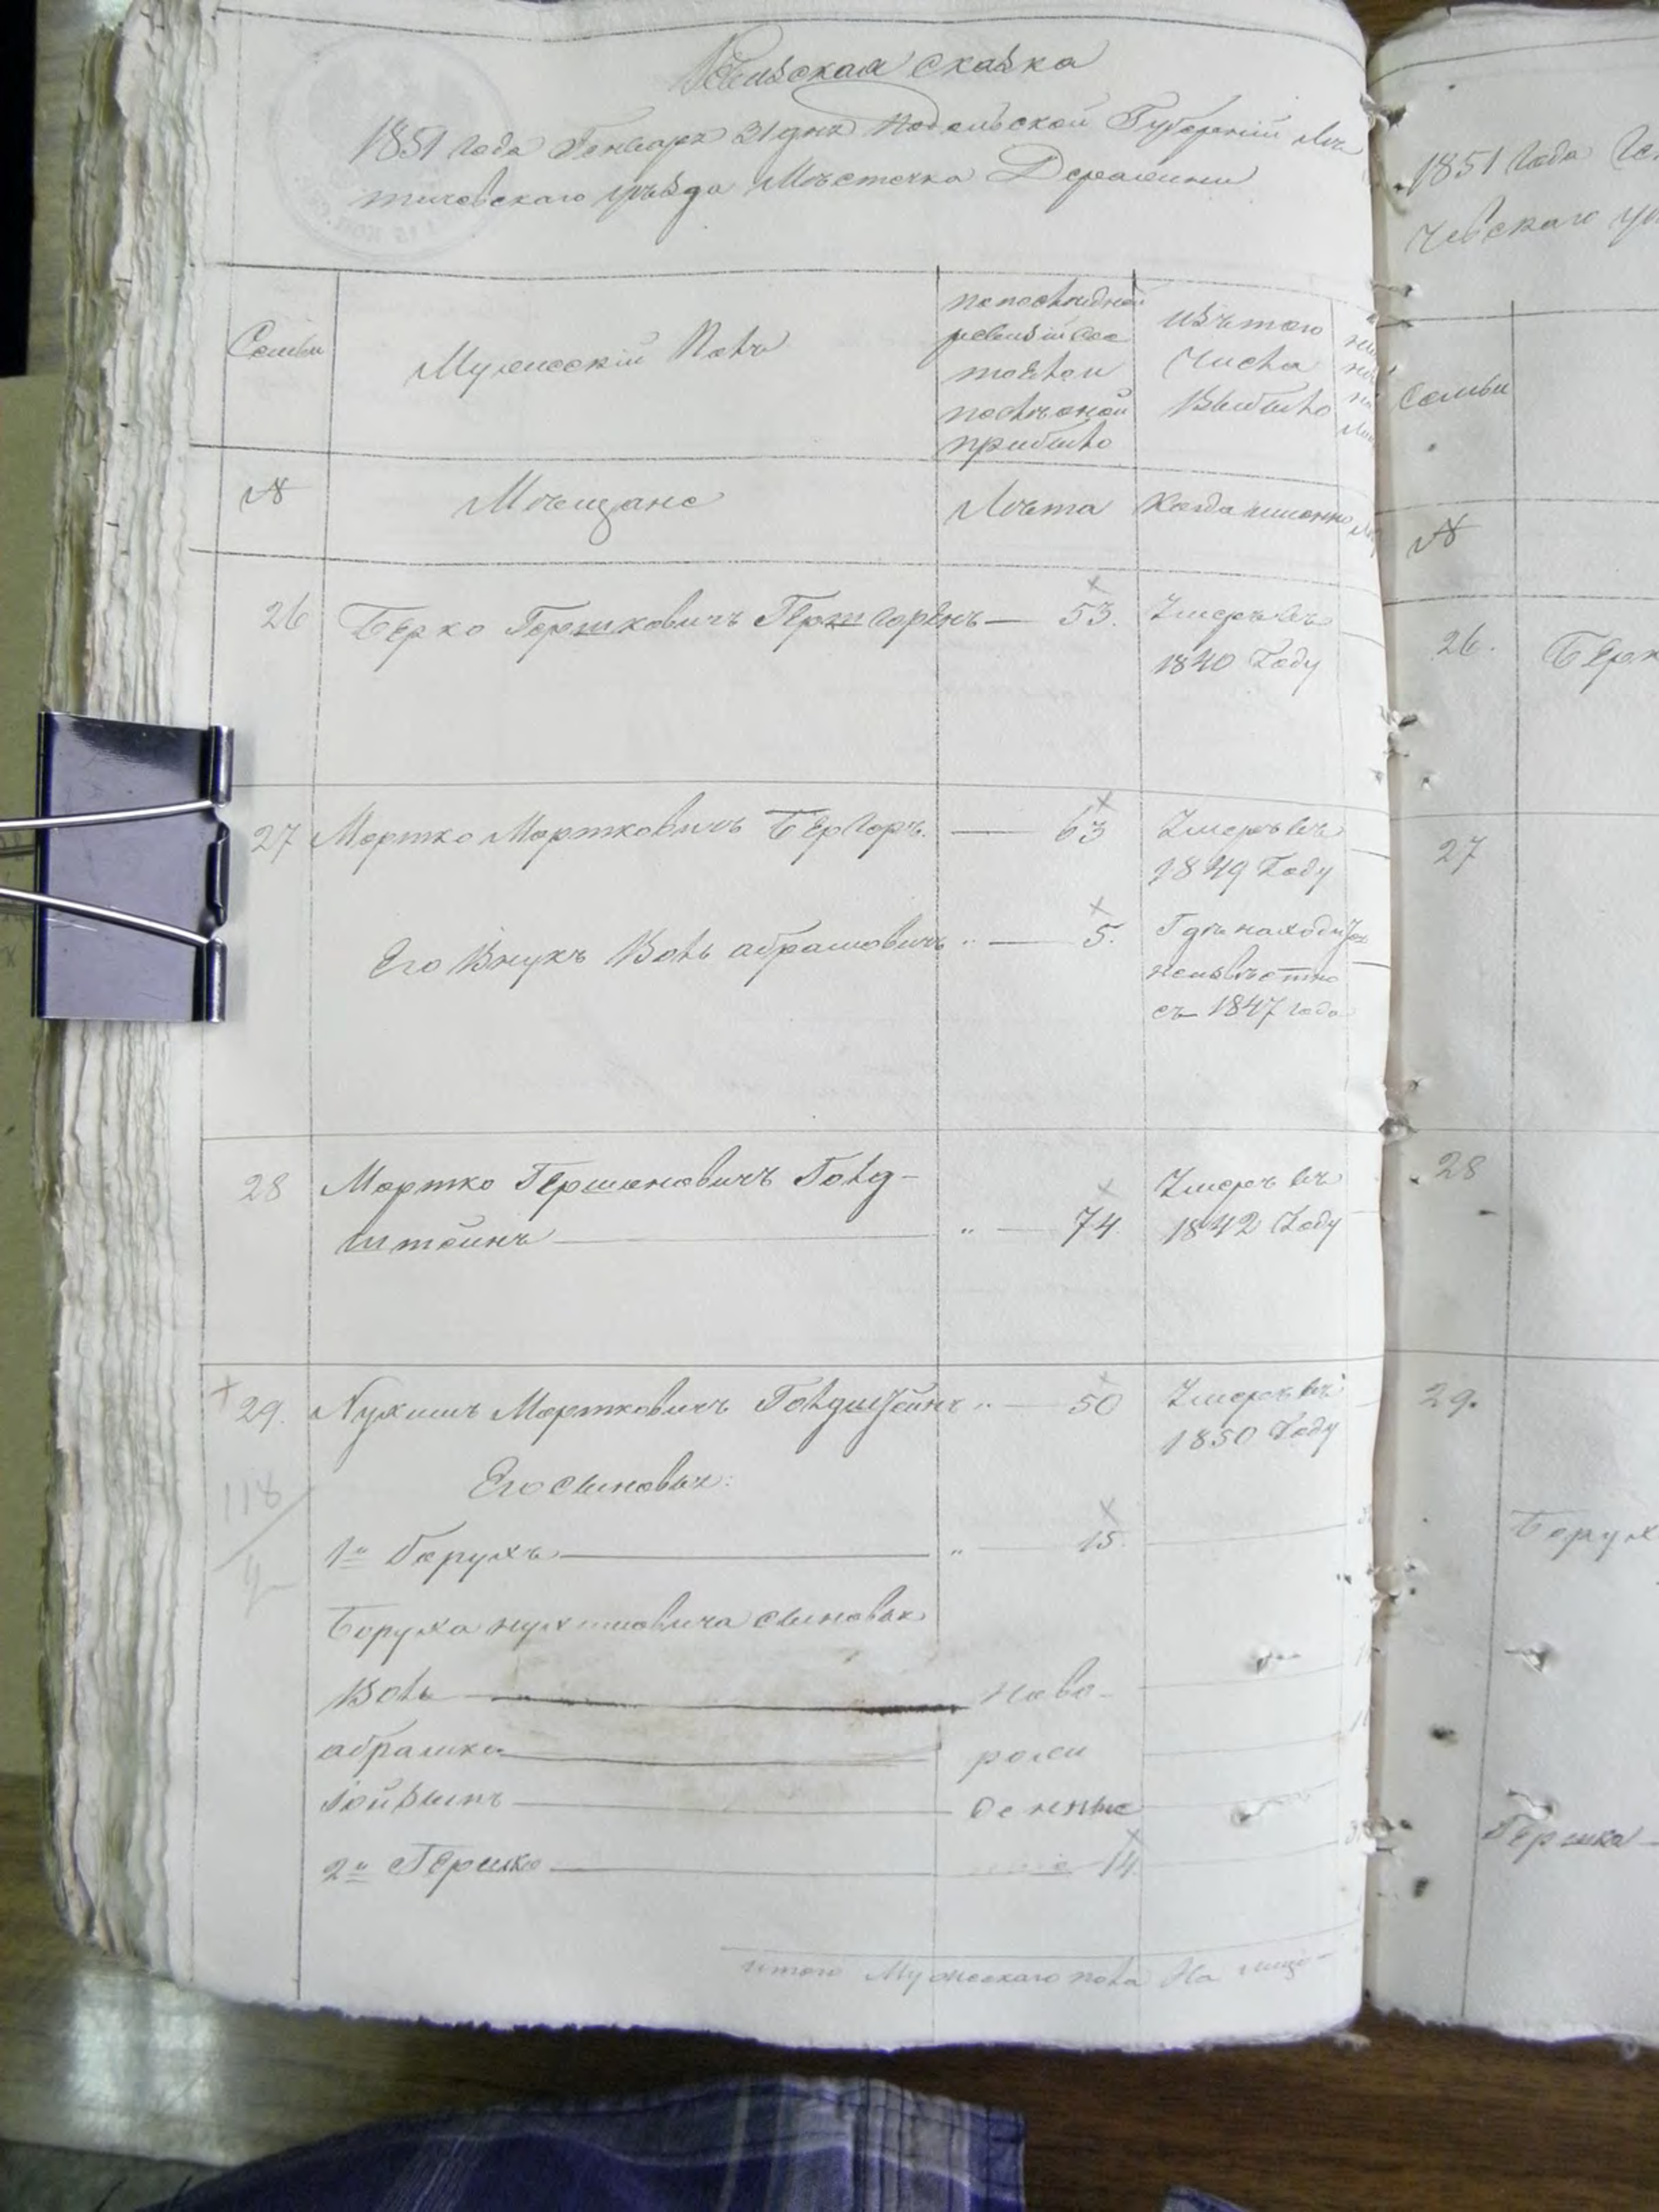 Ревизская сказка
1851 года Генваря 31 дня Подольской Губернiи Лѣ
тичевскаго уѣзда Мѣстечка Деражни
Семьи
Мужескiй Полъ
по последней
ревизiи сос
тоялои
послѣ оной
прибыло
Изъ того
Числа
Выбыло
№
Мѣщане
Лѣта
Когда именно
26
Берко Гершковичъ
53.
Умеръ въ
1840 Году
27
Мортко Мортковичъ Бергеръ.
63
Умеръ въ
1849 Году
Его Внукъ Воль абрамовичъ
5.
Где находится
неизвѣстно
съ 1847 года
28
Мортко Гершоновичъ Голд-
штейнъ
74
Умеръ въ
1842 Году
29.
Нухимъ Мортковичъ Голдштейнъ
50
Умеръ въ
1850 Году
Его сыновья:
118
1й Борухъ
15.
Боруха нухимовича сыновья
Воль
Ново-
абрамка
рож
Сойвинъ
денные
2й Гершко
14
итого Мужескаго пола На лицо
1851 Года Ге
чевскаго уѣ
Семьи
№
26.
Берк
27
28
29.
Борух
Гершка